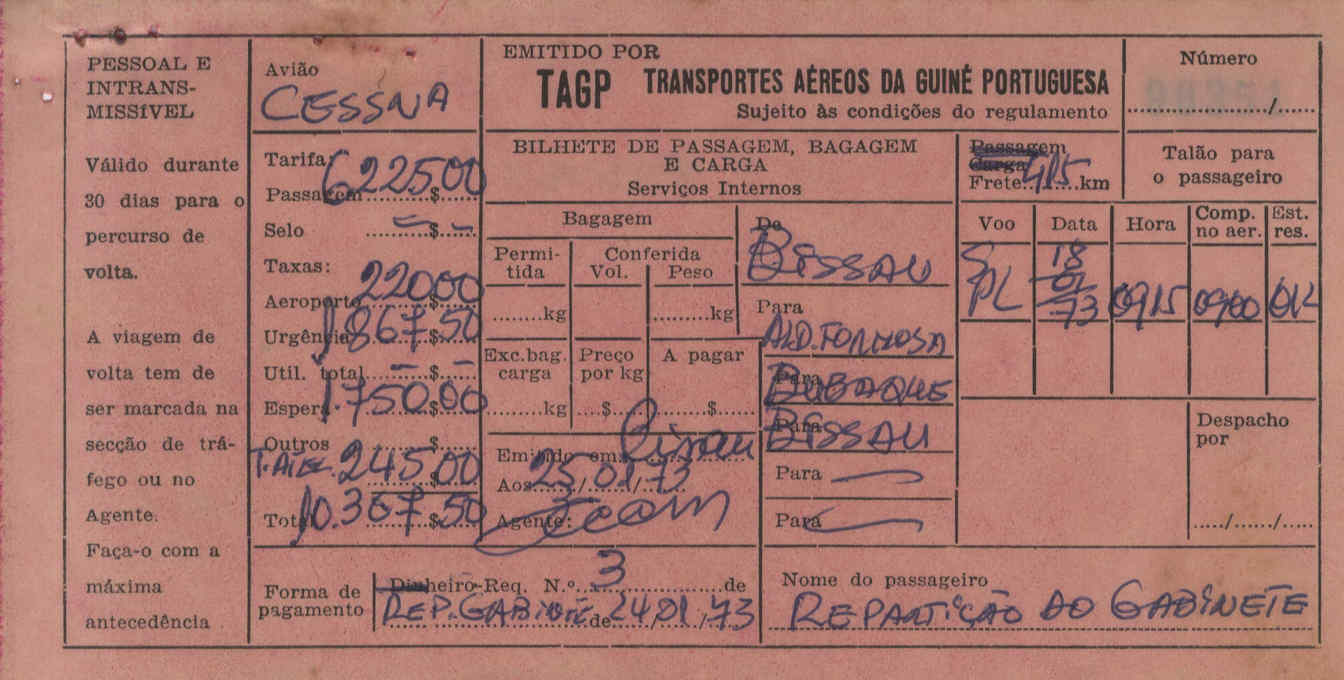 PESSOAL E
INTRANS-
MISSÍVEL
Válido durante
30 dias para o
percurso de
volta.
A viagem de
volta tem de
ser marcada na
secção de trá-
fego ou no
Agente.
Faça-o com a
máxima
antecedência.
Avião
CESSNA
Tarifa
Passagem 6225$00
Selo — $ —
Taxas:
Aeroporto 220$00
Urgência 1.867$50
Util. total — $ —
Espera 1.750$00
Outros
245$00
Total 10.367$50
EMITIDO POR
TAGP TRANSPORTES AÉREOS DA GUINÉ PORTUGUESA
Sujeito às condições do regulamento
BILHETE DE PASSAGEM, BAGAGEM
E CARGA
Serviços Internos
Bagagem
Permi-
tida
Conferida
Vol. Peso
........kg .........kg
Exc.bag.
carga
Preço
por kg
A pagar
........kg ...$.... .......$.....
Emitido em Bissau
Aos 25/01/73
Agente:
De
BISSAU
Para
ALD. FORMOSA
Para
BUBAQUE
Para
BISSAU
Para —
Para —
Passagem
Carga
Frete 415 km
Número
......................./......
Talão para
o passageiro
Voo Data Hora Comp.
no aer. Est.
res.
18
01
73 0915 0900 OK
Despacho
por
...../....../.....
Forma de
pagamento
Dinheiro-Req. N.º 3 de
REP. GABINETE de 24/01/73
Nome do passageiro
REPARTIÇÃO DO GABINETE